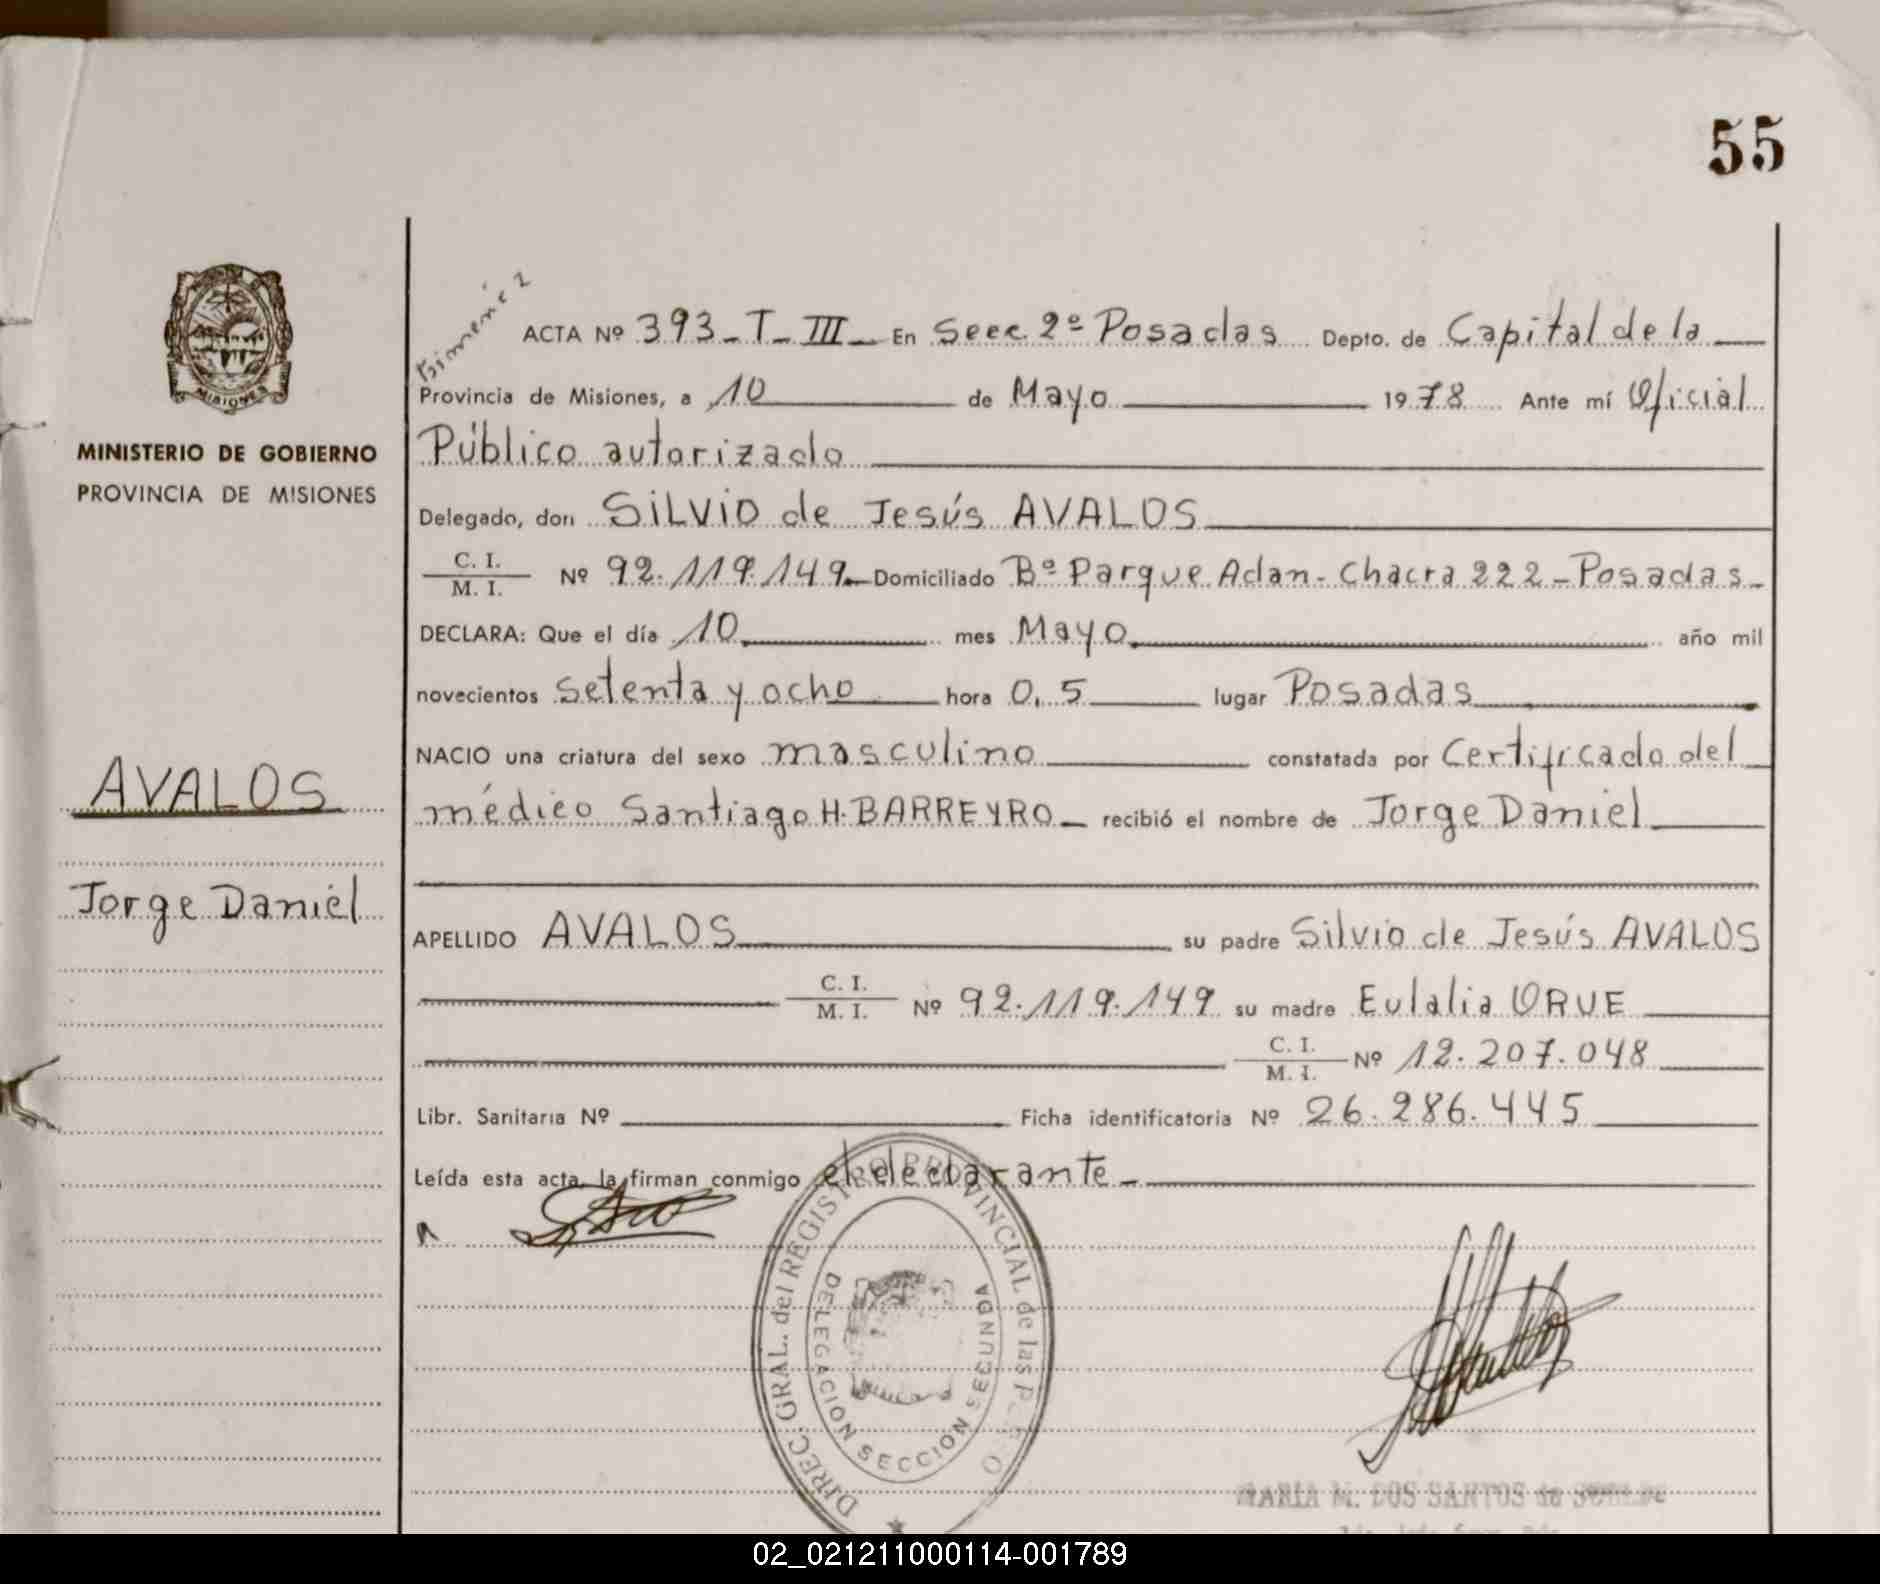 55
MISIONES
MINISTERIO DE GOBIERNO
PROVINCIA DE MISIONES
AVALOS
Jorge Daniel
ACTA Nº 393_T_III_ En Secc. 2º Posadas Depto. de Capital de la
Provincia de Misiones, a 10 de Mayo 1978 Ante mí Oficial
Público autorizado
Delegado, don SILVIO de Jesús AVALOS
C. I.
M. I. Nº 92.119.149 Domiciliado Bº Parque Adan - Chacra 222 - Posadas -
DECLARA: Que el día 10 mes Mayo año mil
novecientos setenta y ocho hora 0,5 lugar Posadas
NACIO una criatura del sexo masculino constatada por Certificado del
médico Santiago H. BARREYRO recibió el nombre de Jorge Daniel
APELLIDO AVALOS su padre Silvio de Jesús AVALOS
C. I.
M. I. Nº 92.119.149 su madre Eulalia ORUE
C. I.
M. I. Nº 12.207.048
Libr. Sanitaria Nº Ficha identificatoria Nº 26.286.445
Leída esta acta, la firman conmigo el declarante -
DIREC. GRAL. del REGISTRO PROVINCIAL de las P
DELEGACION SECCION SEGUNDA
MARIA M. DOS SANTOS de
02_021211000114-001789